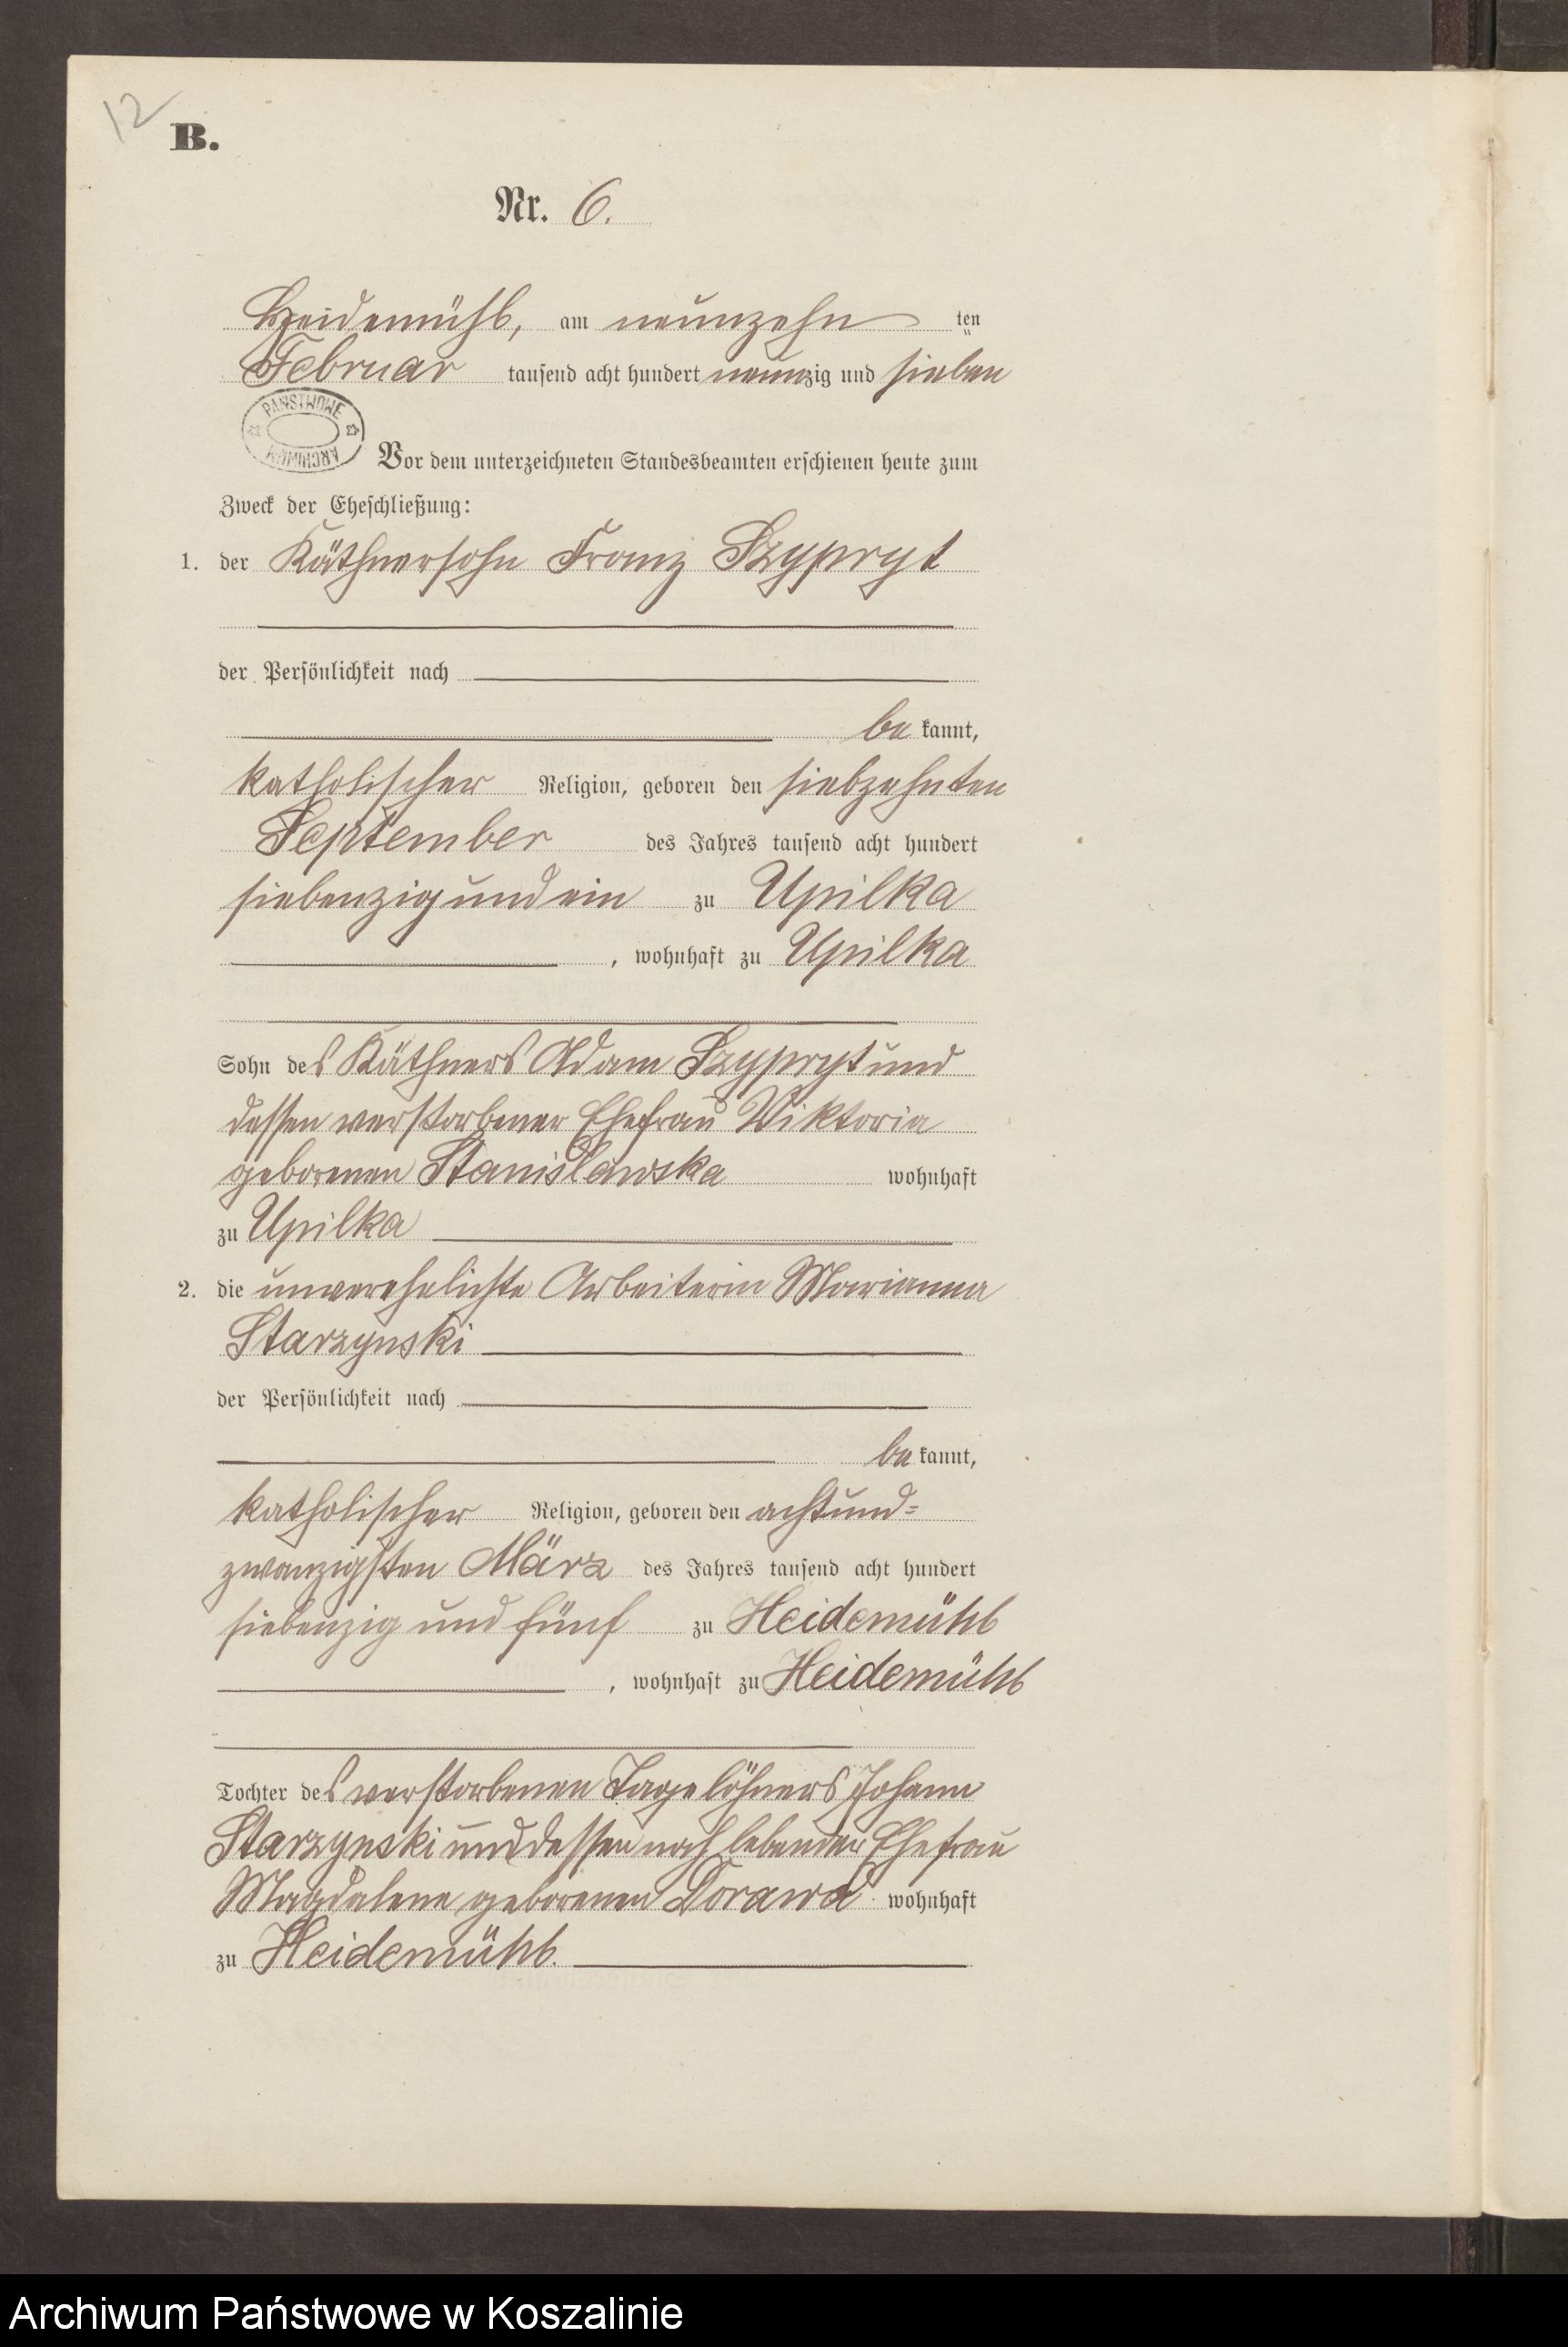 12
B.
Nr. 6.
Heidemühl, am neunzehn ten
Februar tausend acht hundert neunzig und sieben
PAŃSTWOWE ARCHIWUM
Vor dem unterzeichneten Standesbeamten erschienen heute zum
Zweck der Eheschließung:
1. der Käthnersohn Franz Szypryt
der Persönlichkeit nach
be kannt,
katholischer Religion, geboren den siebzehnten
September des Jahres tausend acht hundert
siebenzig und ein zu Upilka
, wohnhaft zu Upilka
Sohn des Käthners Adam Szypryt und
dessen verstorbener Ehefrau Wiktoria
geborenen Stanislawska wohnhaft
zu Upilka
2. die unverehelichte Arbeiterin Marianna
Starzynski
der Persönlichkeit nach
be kannt,
katholischer Religion, geboren den achtund=
zwanzigsten März des Jahres tausend acht hundert
siebenzig und fünf zu Heidemühl
, wohnhaft zu Heidemühl
Tochter des verstorbenen Tagelöhners Johann
Starzynski und dessen noch lebender Ehefrau
Magdalene geborenen Dorawa wohnhaft
zu Heidemühl.
Archiwum Państwowe w Koszalinie